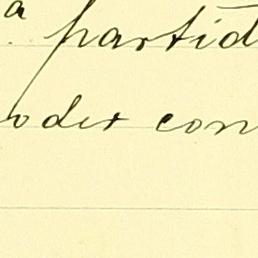 a partid
oder con